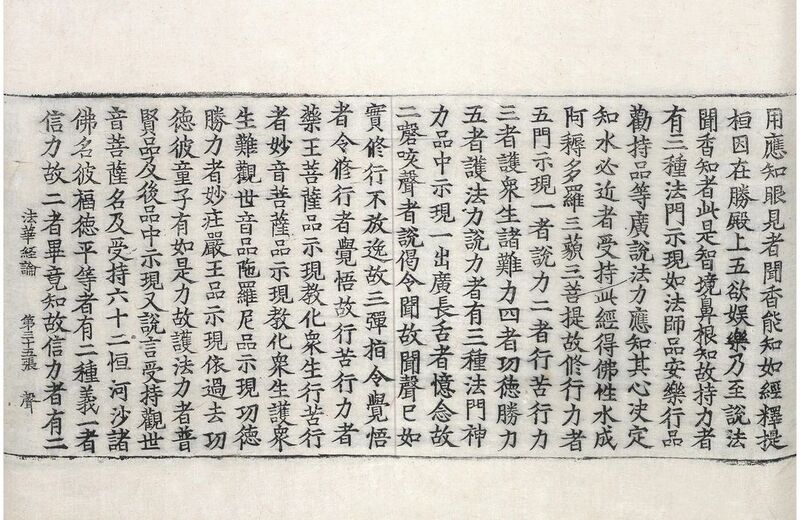 用應知眼見者聞香能知如經釋提
桓因在勝殿上五欲娛樂乃至說法
聞香知者此是智境鼻根知故持力者
有三種法門示現如法師品安樂行品
勸持品等廣說法力應知其心决定
知水必近者受持此經得佛性水成
阿耨多羅三藐三菩提故修行力者
五門示現一者說力二者行苦行力
三者護衆生諸難力四者功德勝力
五者護法力說力者有三種法門神
力品中示現一出廣長舌者憶念故
二謦咳聲者說偈令聞故聞聲已如
實修行不放逸故三彈指令覺悟
者令修行者覺悟故行苦行力者
藥王菩薩品示現教化衆生行苦行
者妙音菩薩品示現教化衆生護衆
生難觀世音品陁羅尼品示現功德
勝力者妙莊嚴王品示現依過去功
德彼童子有如是力故護法力者普
賢品及後品中示現又說言受持觀世
音菩薩名及受持六十二恒河沙諸
佛名彼福德平等者有二種義一者
信力故二者畢竟知故信力者有二
法華經論 第三十五張 聲